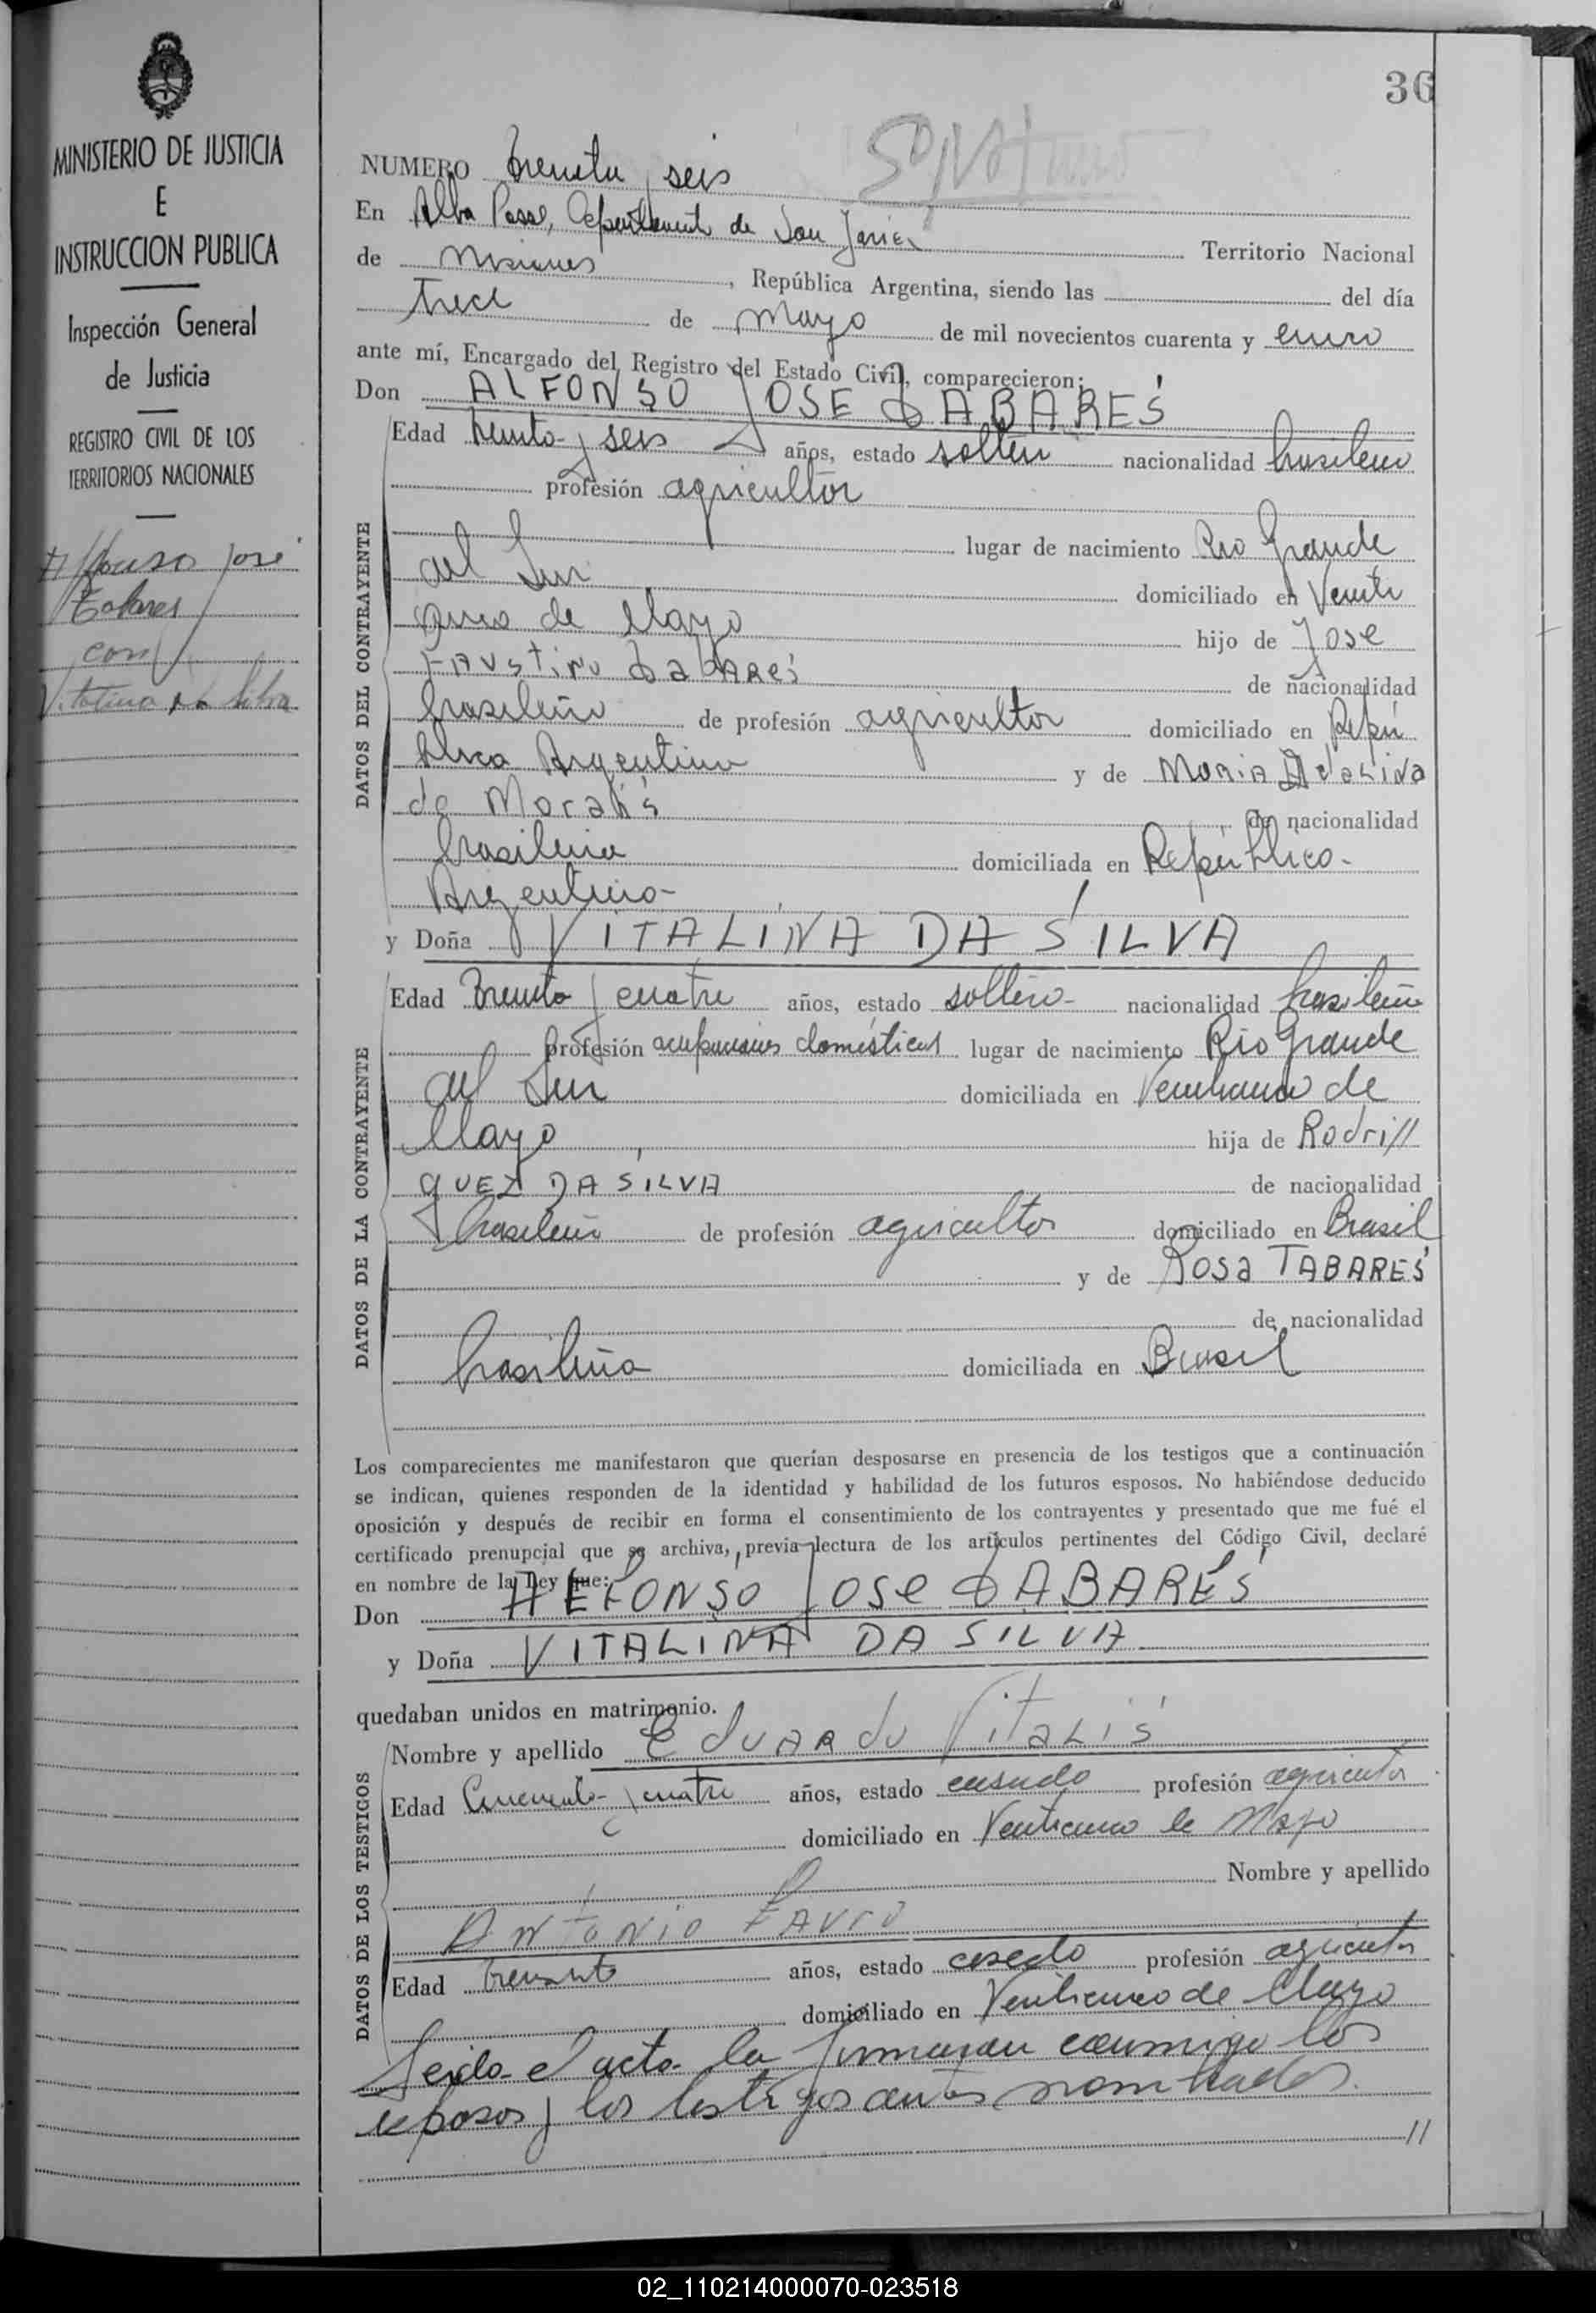 MINISTERIO DE JUSTICIA
E
INSTRUCCION PUBLICA
Inspección General
de Justicia
REGISTRO CIVIL DE LOS
TERRITORIOS NACIONALES
Alfonso José
Tabares
con
Vitalina da Silva
36
NUMERO Treinta y seis
En Alba Posse, Departamento de San Javier Territorio Nacional
de Misiones, República Argentina, siendo las del día
trece de Mayo de mil novecientos cuarenta y
ante mí, Encargado del Registro del Estado Civil, comparecieron:
Don ALFONSO JOSE TABARES
DATOS DEL CONTRAYENTE
Edad treinta y seis años, estado soltero nacionalidad brasileño
profesión agricultor
lugar de nacimiento Rio Grande
del Sur domiciliado en Veinti
cinco de Mayo hijo de Jose
FAUSTINO TABARES de nacionalidad
brasileño de profesión agricultor domiciliado en Repú
blica Argentina y de MARIA ADALINA
de Morais de nacionalidad
brasileña domiciliada en República
Argentina
y Doña VITALINA DA SILVA
DATOS DE LA CONTRAYENTE
Edad Treinta y cuatro años, estado soltera nacionalidad brasileña
profesión ocupaciones domésticas lugar de nacimiento Rio Grande
del Sur domiciliada en Veinticinco de
Mayo hija de Rodri//
GUEZ DA SILVA de nacionalidad
brasileño de profesión agricultor domiciliado en Brasil
y de ROSA TABARES
de nacionalidad
brasileña domiciliada en Brasil
Los comparecientes me manifestaron que querían desposarse en presencia de los testigos que a continuación
se indican, quienes responden de la identidad y habilidad de los futuros esposos. No habiéndose deducido
oposición y después de recibir en forma el consentimiento de los contrayentes y presentado que me fué el
certificado prenupcial que se archiva, previa lectura de los artículos pertinentes del Código Civil, declaré
en nombre de la Ley que:
Don ALFONSO JOSE TABARES
y Doña VITALINA DA SILVA
quedaban unidos en matrimonio.
DATOS DE LOS TESTIGOS
Nombre y apellido Eduardo Vitalis
Edad Cincuenta y cuatro años, estado casado profesión agricultor
domiciliado en Veinticinco de Mayo
Nombre y apellido
ANTONIO
Edad treinta años, estado casado profesión agricultor
domiciliado en Veinticinco de Mayo
Leida el acta la firmaran conmigo los
esposos y los testigos antes nombrados.
//
02_110214000070-023518